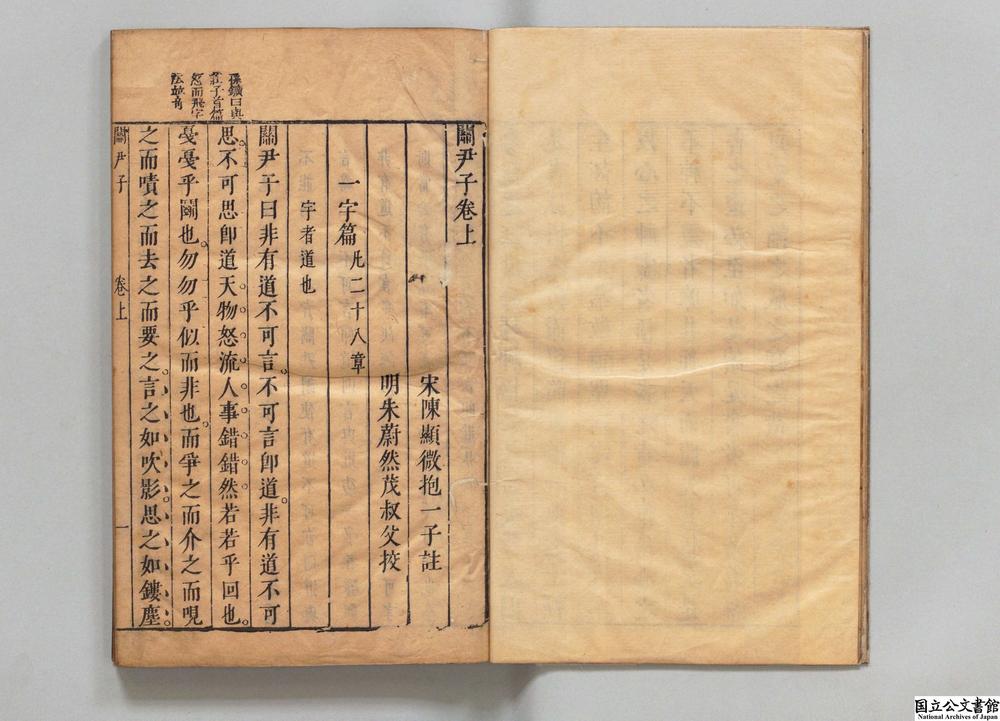 關尹子卷上
宋陳顯微抱一子註
明朱蔚然茂叔父挍
一宇篇 凢二十八章
宇者道也
關尹子曰非有道不可言。不可言卽道。非有道不可
思。不可思卽道。天物怒流人事錯錯然若若乎回也。
戞戞乎鬭也。勿勿乎似而非也。而爭之而介之而哯
之而嘖之而去之而要之。言之如吹影。思之如鏤塵。
孫鑛曰與
莊子首篇
怒而飛字
關尹子 卷上 一
国立公文書館
National Archives of Japan